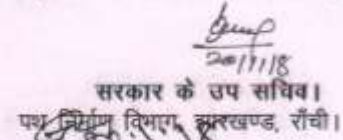 20/7/18
सरकार के उप सचिव।
पथ निर्माण विभाग, झारखण्ड, राँची।